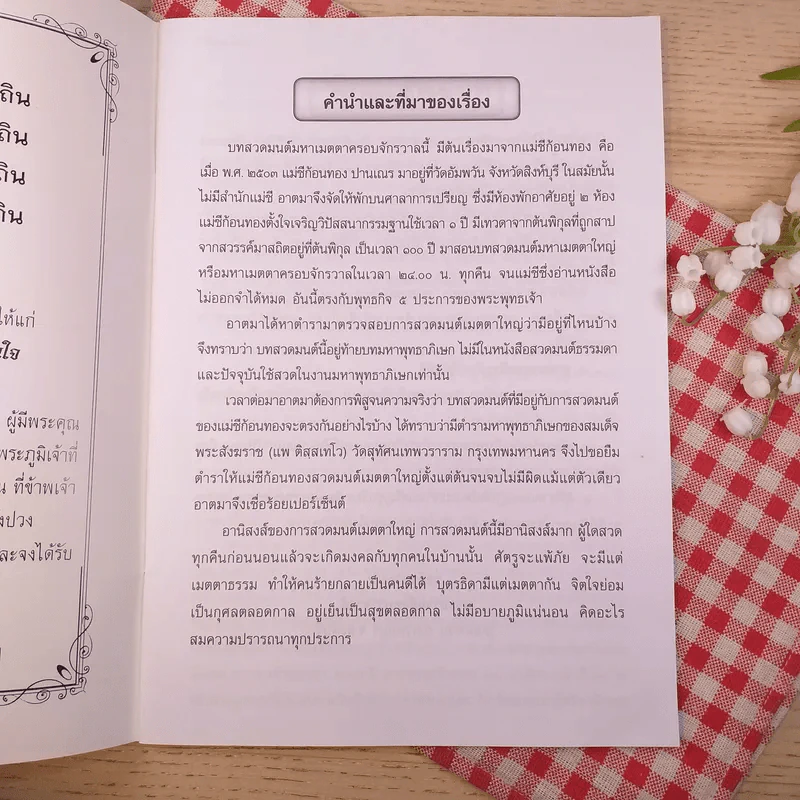 ถิน
ถิน
ถิน
กิน
ให้แก่
ผู้มีพระคุณ
พระภูมิเจ้าที่
ที่ข้าพเจ้า
ปวง
ละจงได้รับ
คำนำและที่มาของเรื่อง
บทสวดมนต์มหาเมตตาครอบจักรวาลนี้ มีต้นเรื่องมาจากแม่ชีก้อนทอง คือ
เมื่อ พ.ศ. ๒๕๐๓ แม่ชีก้อนทอง ปานเณร มาอยู่ที่วัดอัมพวัน จังหวัดสิงห์บุรี ในสมัยนั้น
ไม่มีสำนักแม่ชี อาตมาจึงจัดให้พักบนศาลาการเปรียญ ซึ่งมีห้องพักอาศัยอยู่ ๒ ห้อง
แม่ชีก้อนทองตั้งใจเจริญวิปัสสนากรรมฐานใช้เวลา ๑ ปี มีเทวดาจากต้นพิกุลที่ถูกสาป
จากสวรรค์มาสถิตอยู่ที่ต้นพิกุล เป็นเวลา ๑๐๐ ปี มาสอนบทสวดมนต์มหาเมตตาใหญ่
หรือมหาเมตตาครอบจักรวาลในเวลา ๒๔.๐๐ น. ทุกคืน จนแม่ชีซึ่งอ่านหนังสือ
ไม่ออกจำได้หมด อันนี้ตรงกับพุทธกิจ ๕ ประการของพระพุทธเจ้า
อาตมาได้หาตำรามาตรวจสอบการสวดมนต์เมตตาใหญ่ว่ามีอยู่ที่ไหนบ้าง
จึงทราบว่า บทสวดมนต์นี้อยู่ท้ายบทมหาพุทธาภิเษก ไม่มีในหนังสือสวดมนต์ธรรมดา
และปัจจุบันใช้สวดในงานมหาพุทธาภิเษกเท่านั้น
เวลาต่อมาอาตมาต้องการพิสูจนความจริงว่า บทสวดมนต์ที่มีอยู่กับการสวดมนต์
ของแม่ชีก้อนทองจะตรงกันอย่างไรบ้าง ได้ทราบว่ามีตำรามหาพุทธาภิเษกของสมเด็จ
พระสังฆราช (แพ ติสฺสเทโว) วัดสุทัศนเทพวราราม กรุงเทพมหานคร จึงไปขอยืม
ตำราให้แม่ชีก้อนทองสวดมนต์เมตตาใหญ่ตั้งแต่ต้นจนจบไม่มีผิดแม้แต่ตัวเดียว
อาตมาจึงเชื่อร้อยเปอร์เซ็นต์
อานิสงส์ของการสวดมนต์เมตตาใหญ่ การสวดมนต์นี้มีอานิสงส์มาก ผู้ใดสวด
ทุกคืนก่อนนอนแล้วจะเกิดมงคลกับทุกคนในบ้านนั้น ศัตรูจะแพ้ภัย จะมีแต่
เมตตาธรรม ทำให้คนร้ายกลายเป็นคนดีได้ บุตรธิดามีแต่เมตตากัน จิตใจย่อม
เป็นกุศลตลอดกาล อยู่เย็นเป็นสุขตลอดกาล ไม่มีอบายภูมิแน่นอน คิดอะไร
สมความปรารถนาทุกประการ